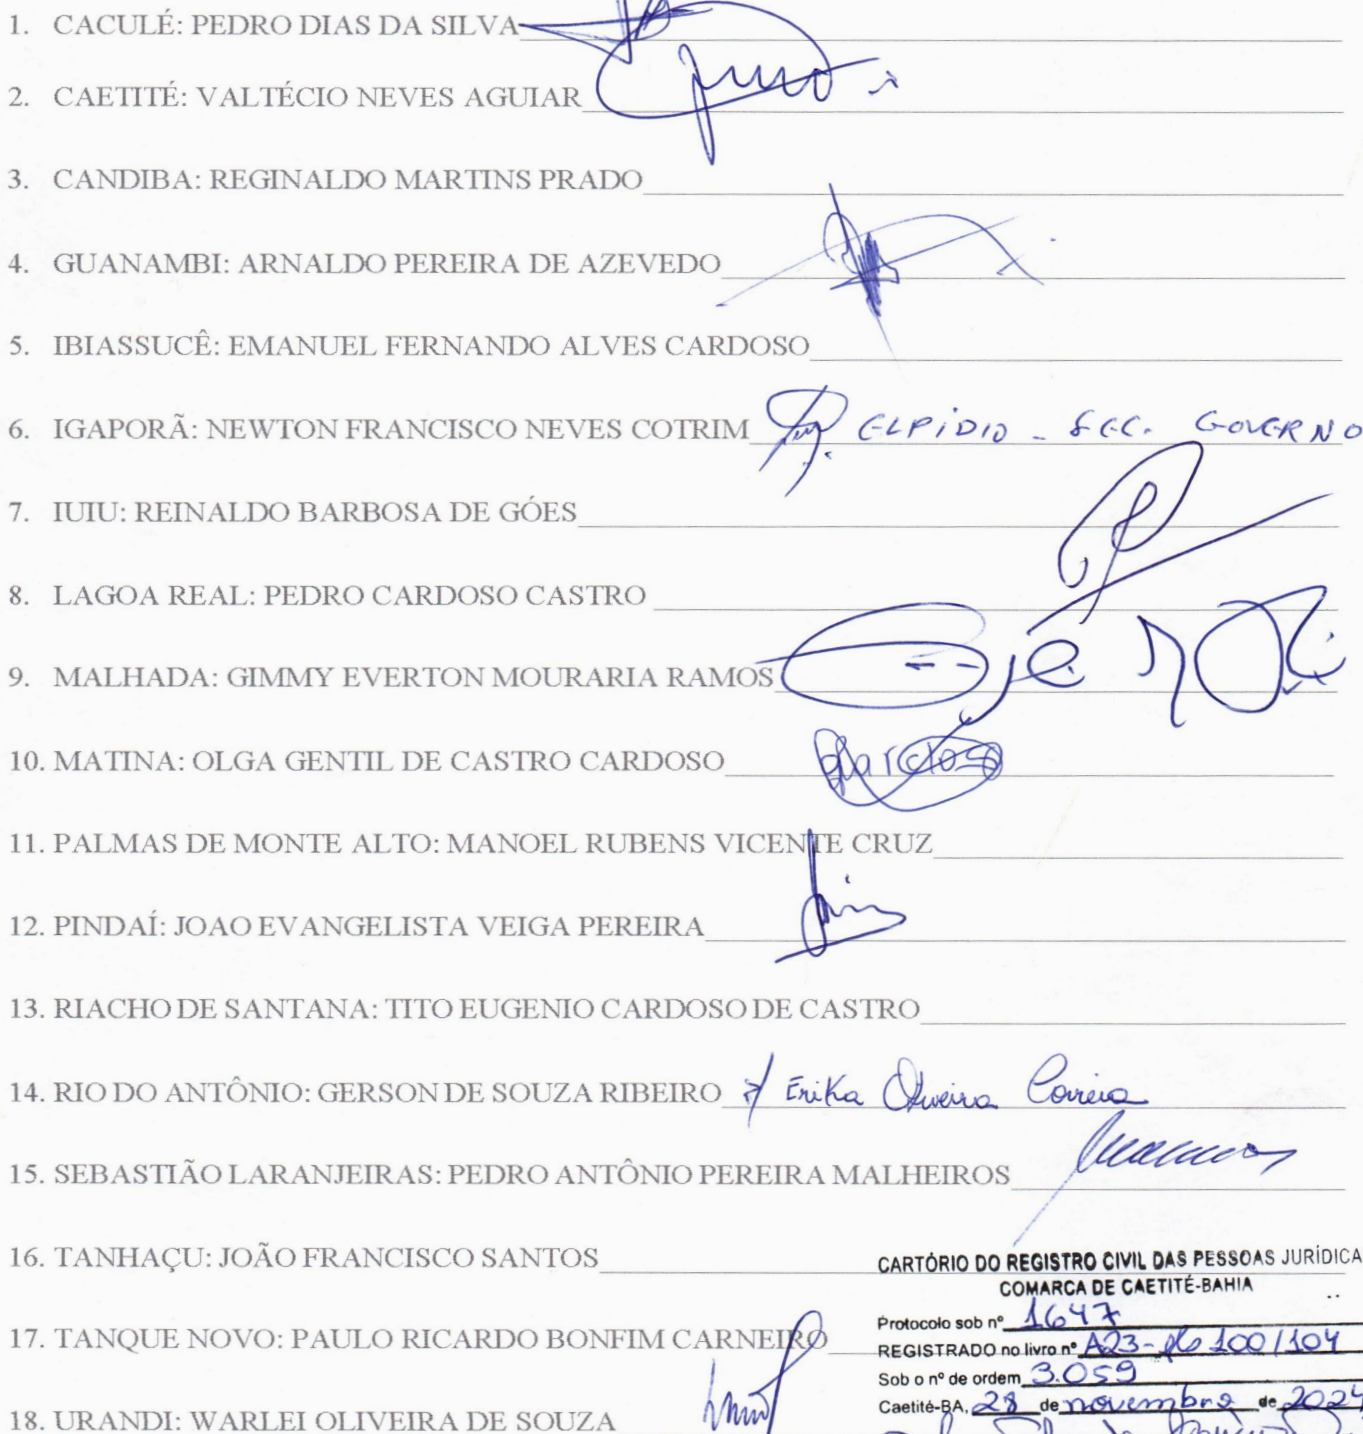 1. CACULÉ: PEDRO DIAS DA SILVA
2. CAETITÉ: VALTÉCIO NEVES AGUIAR
3. CANDIBA: REGINALDO MARTINS PRADO
4. GUANAMBI: ARNALDO PEREIRA DE AZEVEDO
5. IBIASSUCÊ: EMANUEL FERNANDO ALVES CARDOSO
6. IGAPORÃ: NEWTON FRANCISCO NEVES COTRIM ELPÍDIO - SEC. GOVERNO
7. IUIU: REINALDO BARBOSA DE GÓES
8. LAGOA REAL: PEDRO CARDOSO CASTRO
9. MALHADA: GIMMY EVERTON MOURARIA RAMOS
10. MATINA: OLGA GENTIL DE CASTRO CARDOSO
11. PALMAS DE MONTE ALTO: MANOEL RUBENS VICENTE CRUZ
12. PINDAÍ: JOAO EVANGELISTA VEIGA PEREIRA
13. RIACHO DE SANTANA: TITO EUGENIO CARDOSO DE CASTRO
14. RIO DO ANTÔNIO: GERSON DE SOUZA RIBEIRO p/ Erika Oliveira Correia
15. SEBASTIÃO LARANJEIRAS: PEDRO ANTÔNIO PEREIRA MALHEIROS
16. TANHAÇU: JOÃO FRANCISCO SANTOS
17. TANQUE NOVO: PAULO RICARDO BONFIM CARNEIRO
18. URANDI: WARLEI OLIVEIRA DE SOUZA
CARTÓRIO DO REGISTRO CIVIL DAS PESSOAS JURÍDICA
COMARCA DE CAETITÉ-BAHIA
Protocolo sob nº 1647
REGISTRADO no livro nº A23- 100/104
Sob o nº de ordem 3.059
Caetité-BA, 28 de novembro de 2024